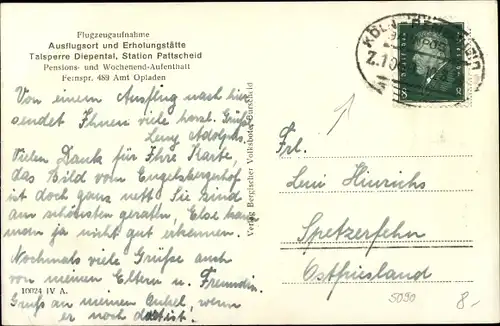 Flugzeugaufnahme
Ausflugsort und Erholungstätte
Talsperre Diepental, Station Pattscheid
Pensions- und Wochenend-Aufenthalt
Feinspr. 489 Amt Opladen
Von einem Ausflug nach hier
sendet Ihnen viele herzl. Grüße
Leny Adolphs.
Vielen Dank für Ihre Karte,
das Bild vom Engelsbergerhof
ist doch ganz nett Sie sind
am schönsten geraten, Else kann
man ja nicht gut erkennen.
Nochmals viele Grüße auch
von meinen Eltern u. Freundin.
Gruß an meinen Onkel, wenn
er noch da ist.
10024 IV A.
Verlag Bergischer Volksbote, Burscheid
KÖLN
Z.10
8
Frl.
Leni Hinrichs
Spetzerfehn
Ostfriesland
5090
8.-